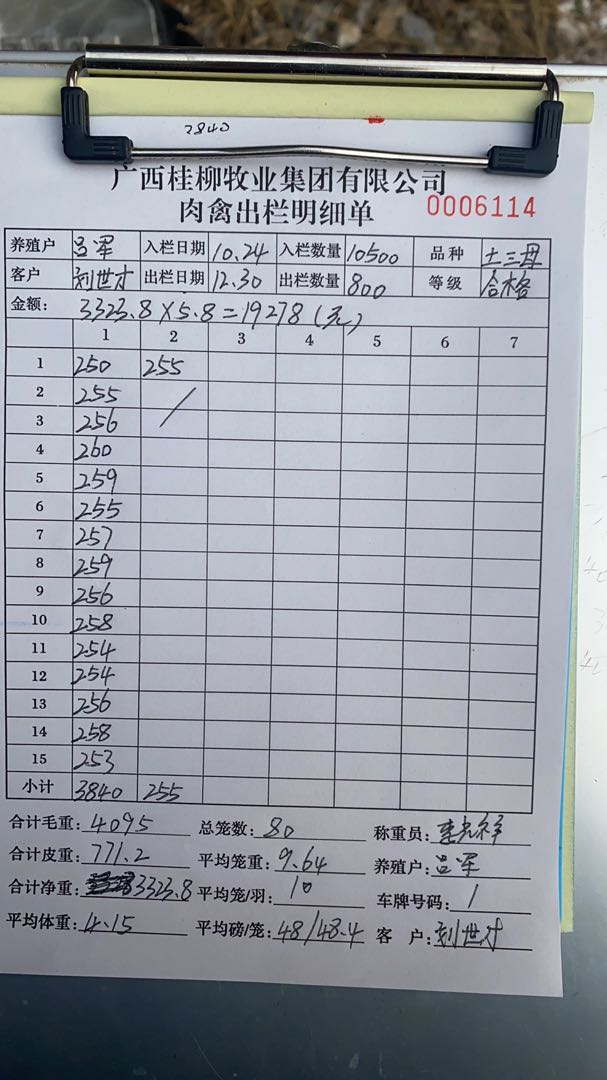 3840
广西桂柳牧业集团有限公司
肉禽出栏明细单 0006114
养殖户 吕军 入栏日期 10.24 入栏数量 10500 品种 土三母
客户 刘世才 出栏日期 12.30 出栏数量 800 等级 合格
金额: 3323.8×5.8=19278(元)
1 2 3 4 5 6 7
1 250 255
2 255
3 256
4 260
5 259
6 255
7 257
8 259
9 256
10 258
11 254
12 254
13 256
14 258
15 253
小计 3840 255
合计毛重: 4095 总笼数: 80 称重员:
合计皮重: 771.2 平均笼重: 9.64 养殖户: 吕军
合计净重: 3323.8 平均笼/羽: 10 车牌号码: 1
平均体重: 4.15 平均磅/笼: 48/48.4 客 户: 刘世才